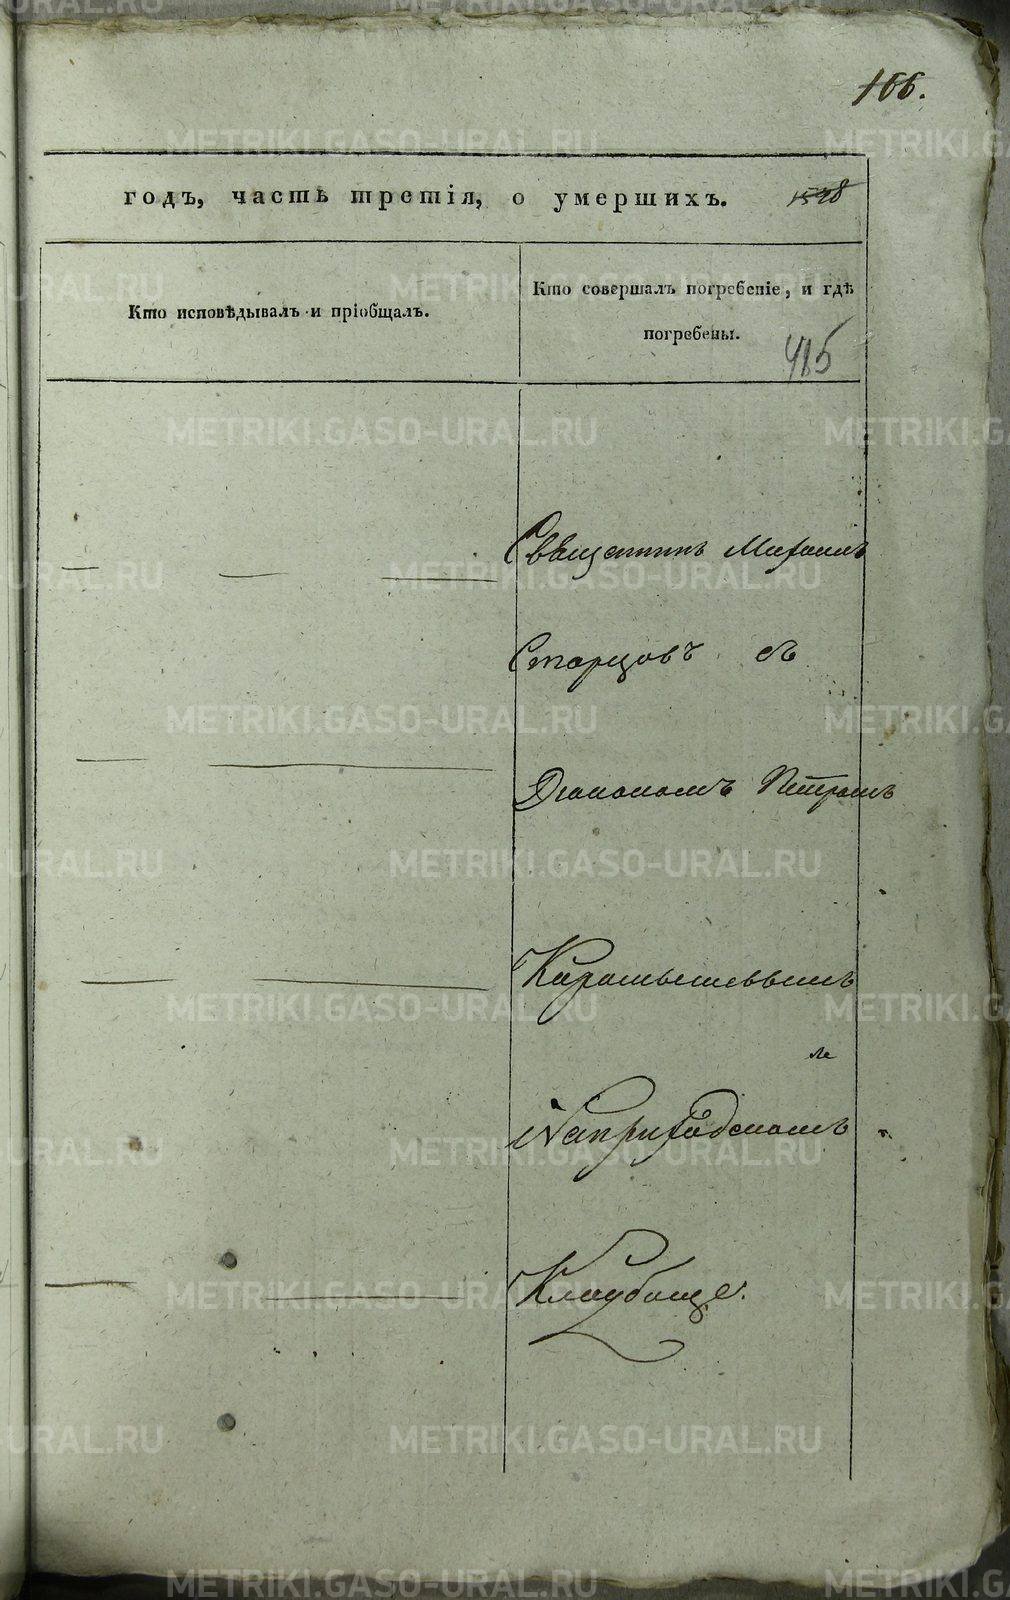 166.
годъ, часть третія, о умершихъ. 1528
Кто исповѣдывалъ и пріобщалъ.
Кто совершалъ погребеніе, и гдѣ
погребены.
415
Священникъ Михаилъ
Старцовъ съ
Діакономъ Петромъ
Карамышевымъ
Наприходскомъ
Кладбище.
METRIKI.GASO-URAL.RU